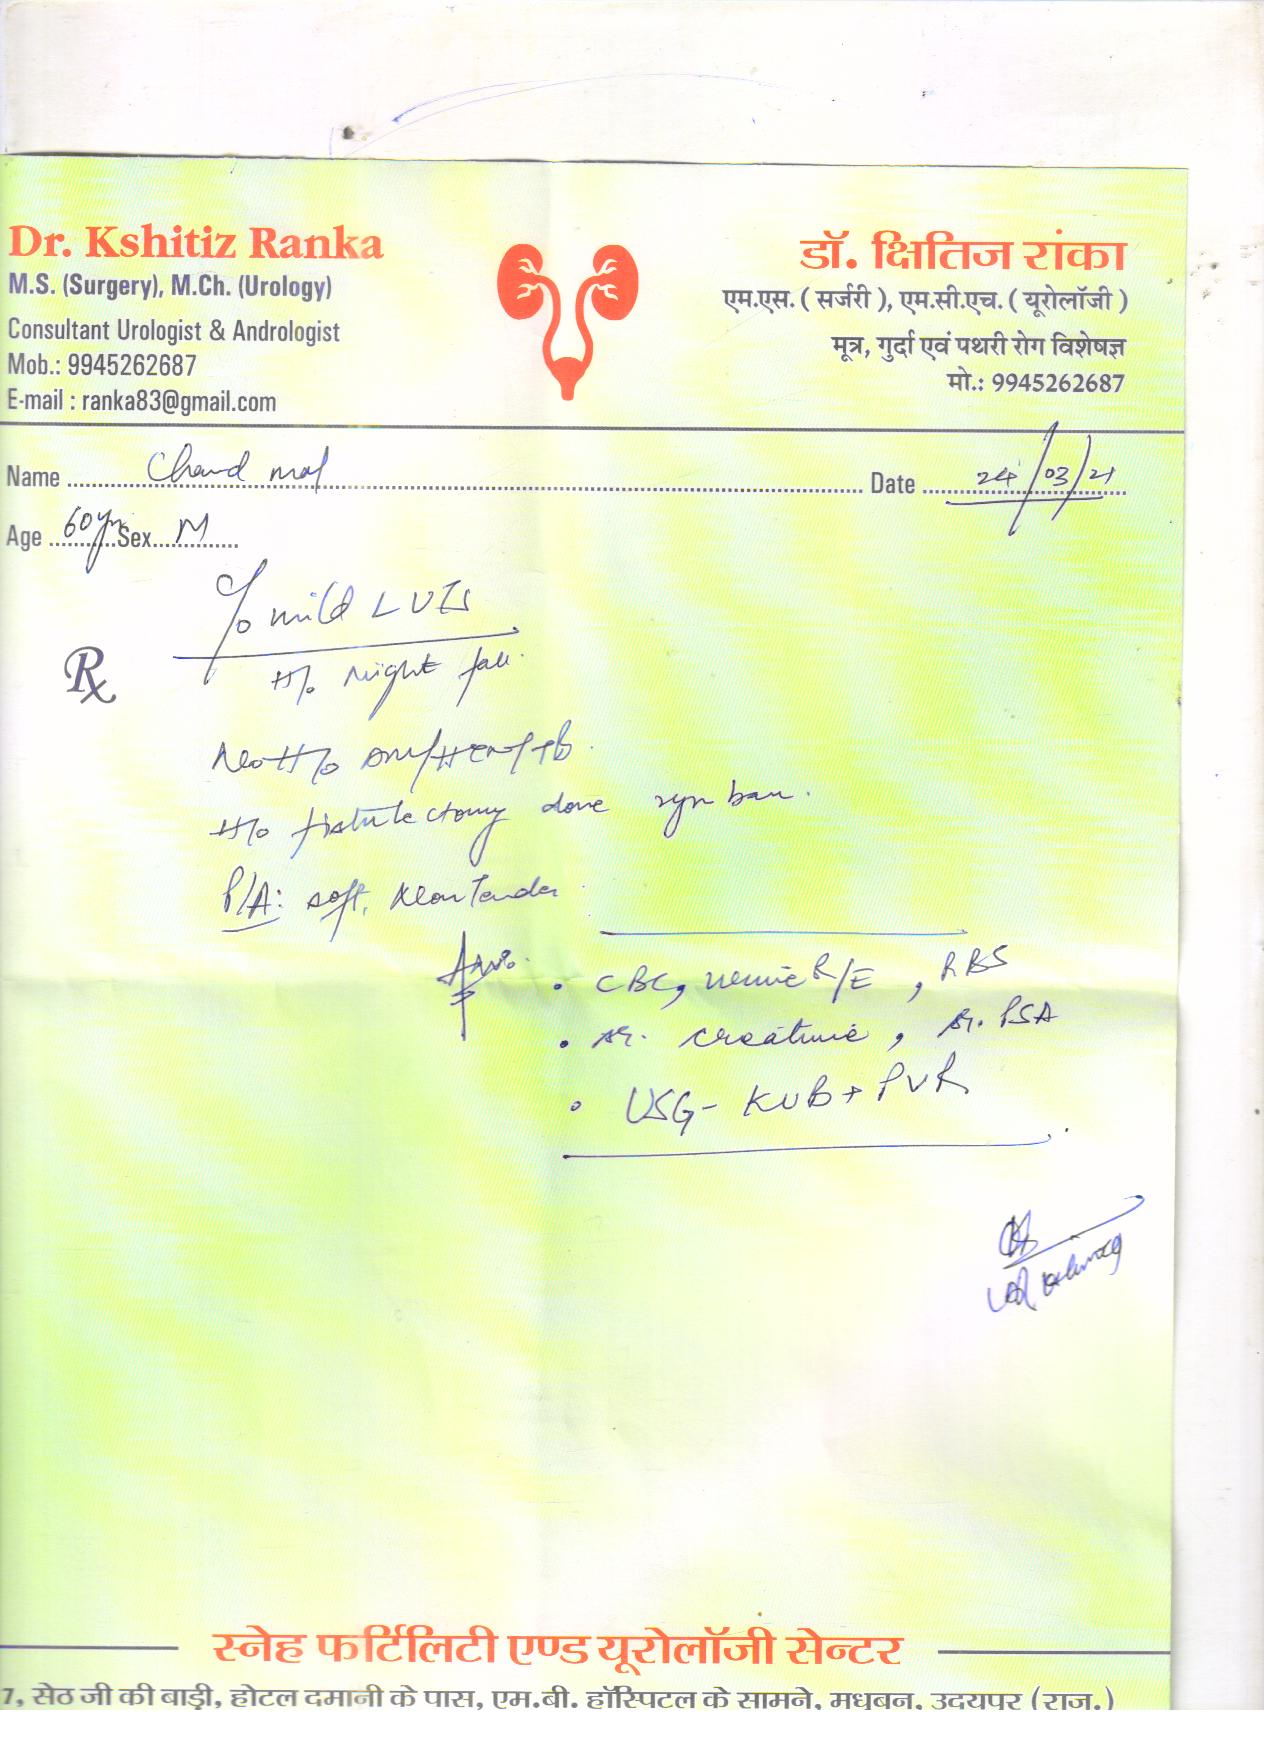 Dr. Kshitiz Ranka
M.S. (Surgery), M.Ch. (Urology)
Consultant Urologist & Andrologist
Mob.: 9945262687
E-mail : ranka83@gmail.com
डॉ. क्षितिज रांका
एम.एस. ( सर्जरी ), एम.सी.एच. ( यूरोलॉजी )
मूत्र, गुर्दा एवं पथरी रोग विशेषज्ञ
मो.: 9945262687
Name Chand mal Date 24/03/21
Age 60yrs Sex M
c/o mild LUTs
Rx
H/o Night fall.
No H/o DM/HTN/TB.
H/o fistulectomy done
P/A: soft, Non Tender.
• CBC, urine R/E, RBS
• sr. creatinine, sr. PSA
• USG- KUB + PVR
स्नेह फर्टिलिटी एण्ड यूरोलॉजी सेन्टर
7, सेठ जी की बाड़ी, होटल दमानी के पास, एम.बी. हॉस्पिटल के सामने, मधुबन, उदयपुर (राज.)